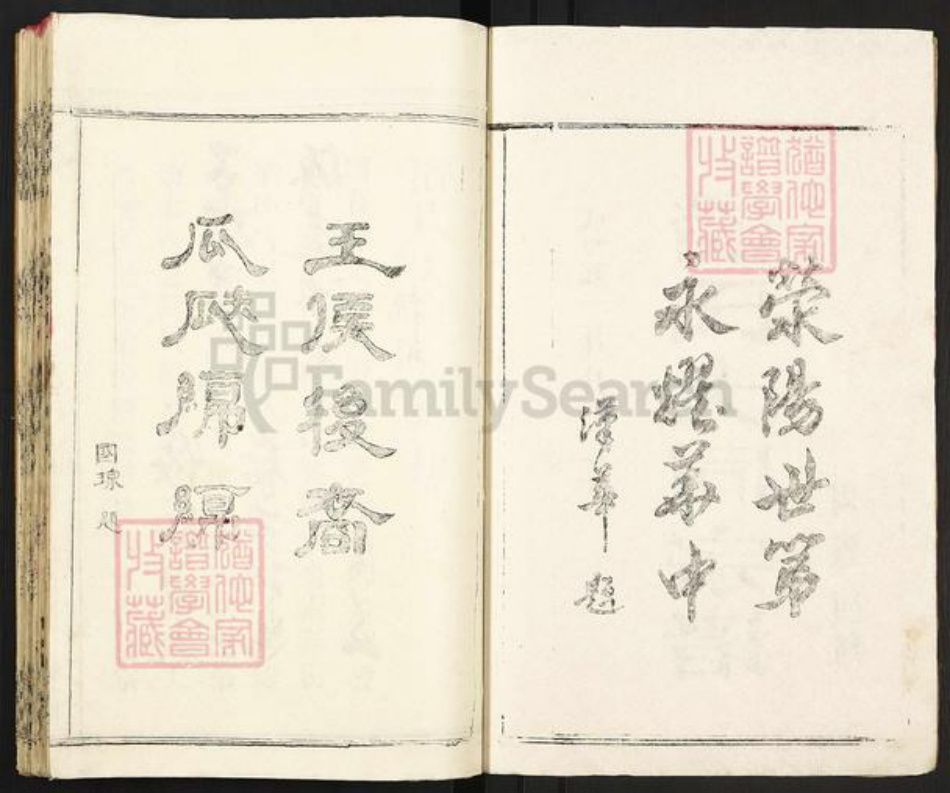 猶他家
譜學會
收藏
滎陽世第
永耀華中
華 題
王侯後裔
瓜瓞綿綿
國 題
猶他家
譜學會
收藏
FamilySearch